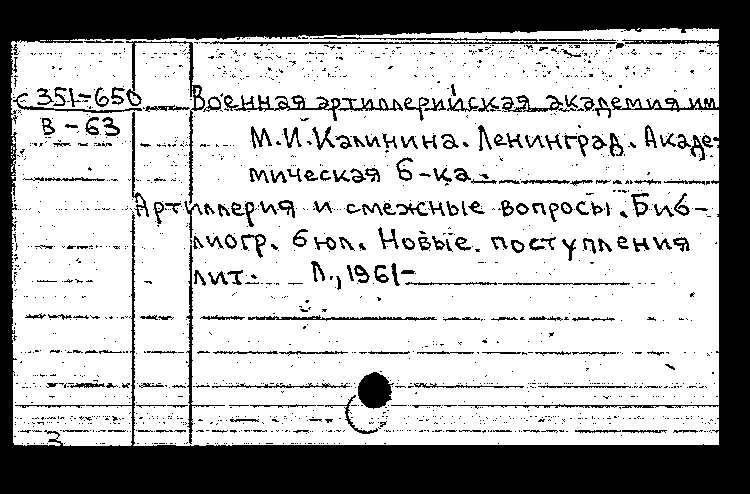 с 351-650 Военная артиллерийская академия им
В-63 М.И.Калинина. Ленинград. Акаде-
мическая б-ка.
Артиллерия и смежные вопросы. Биб-
лиогр. бюл. Новые поступления
лит. Л., 1961-
3